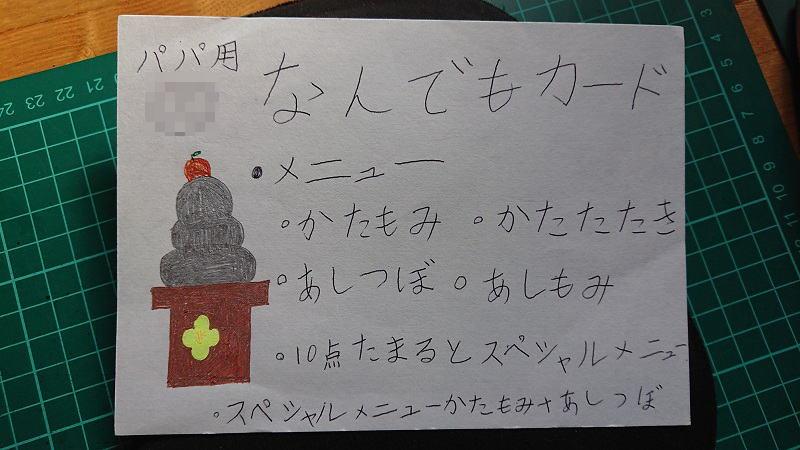 パパ用
なんでもカード
•メニュー
◦かたもみ ◦かたたたき
◦あしつぼ ◦あしもみ
◦10点たまるとスペシャルメニュー
◦スペシャルメニューかたもみ+あしつぼ
24 23 22 21 20
3 4 5 6 7 8 9 10